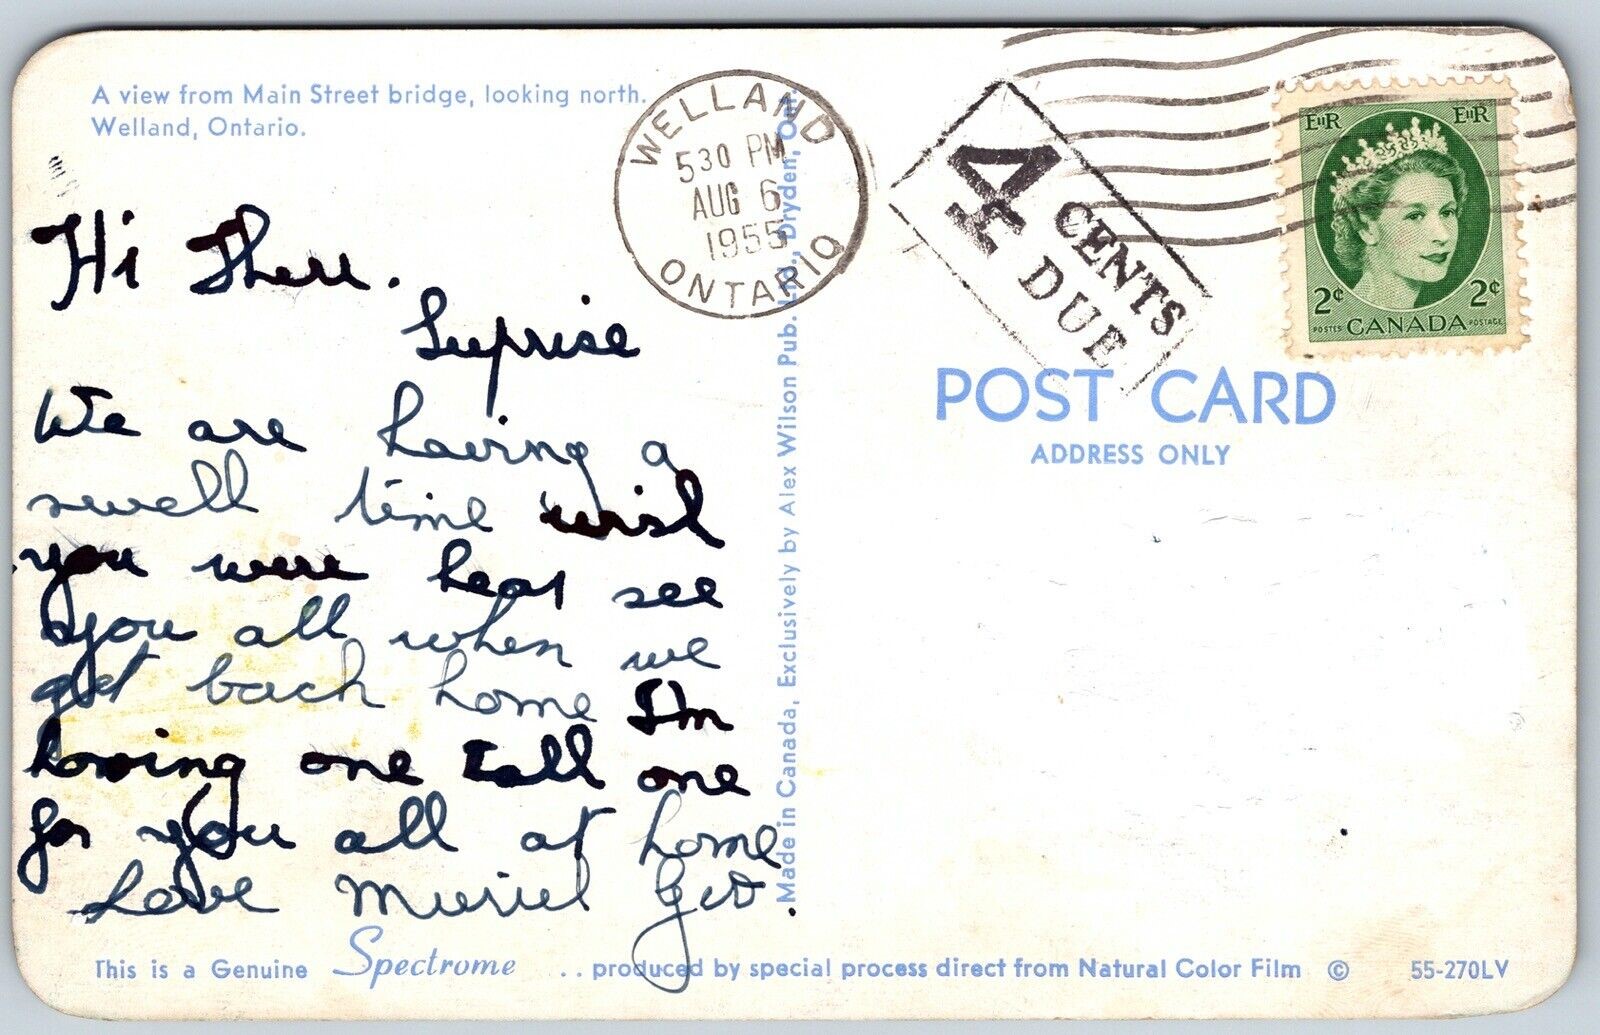 A view from Main Street bridge, looking north.
Welland, Ontario.
Hi There.
Suprise
We are having a
swell time wish
you were hear see
you all when we
get back home I'm
having one tall one
for you all at home
Love Muriel Geo.
WELLAND
5 30 PM
AUG 6
1955
ONTARIO
4
CENTS
DUE
EIIR EIIR
2¢ 2¢
POSTES CANADA POSTAGE
POST CARD
ADDRESS ONLY
Made in Canada, Exclusively by Alex Wilson Pub. Ltd., Dryden, Ont.
This is a Genuine Spectrome .. produced by special process direct from Natural Color Film © 55-270LV